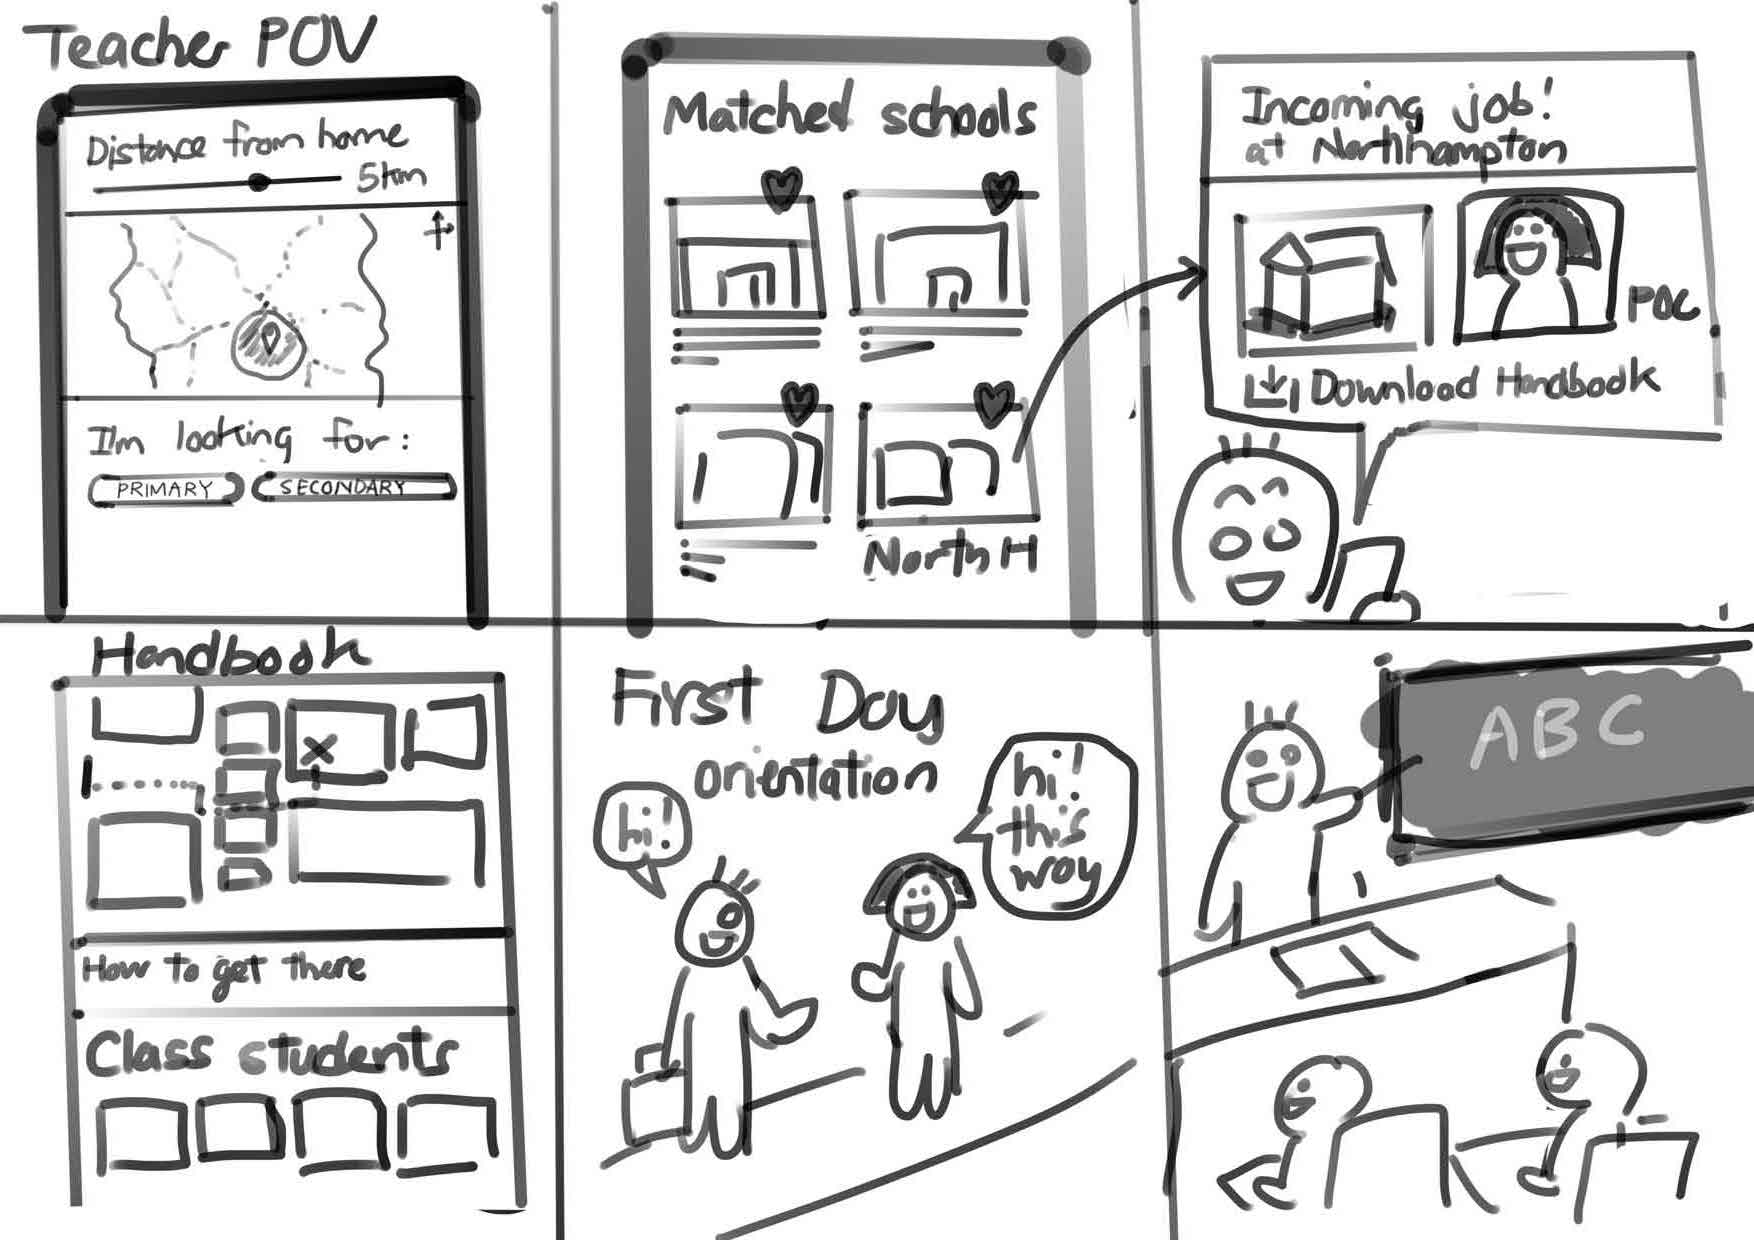 Teacher POV
Distance from home
5km
I'm looking for:
PRIMARY
SECONDARY
Matched schools
North H
Incoming job!
at Northhampton
POC
Download Handbook
Handbook
How to get there
Class students
First Day
orientation
hi!
hi!
this
way
ABC